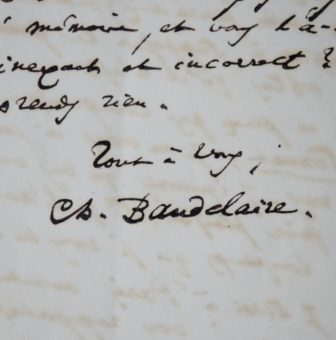 mémoire, et vous l'a-
inexact et incorrect ?
rends rien.
Tout à vous,
Ch. Baudelaire.